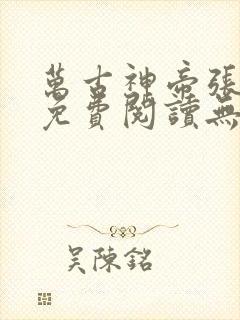 萬古神帝張
免費閱讀無
吳陳銘